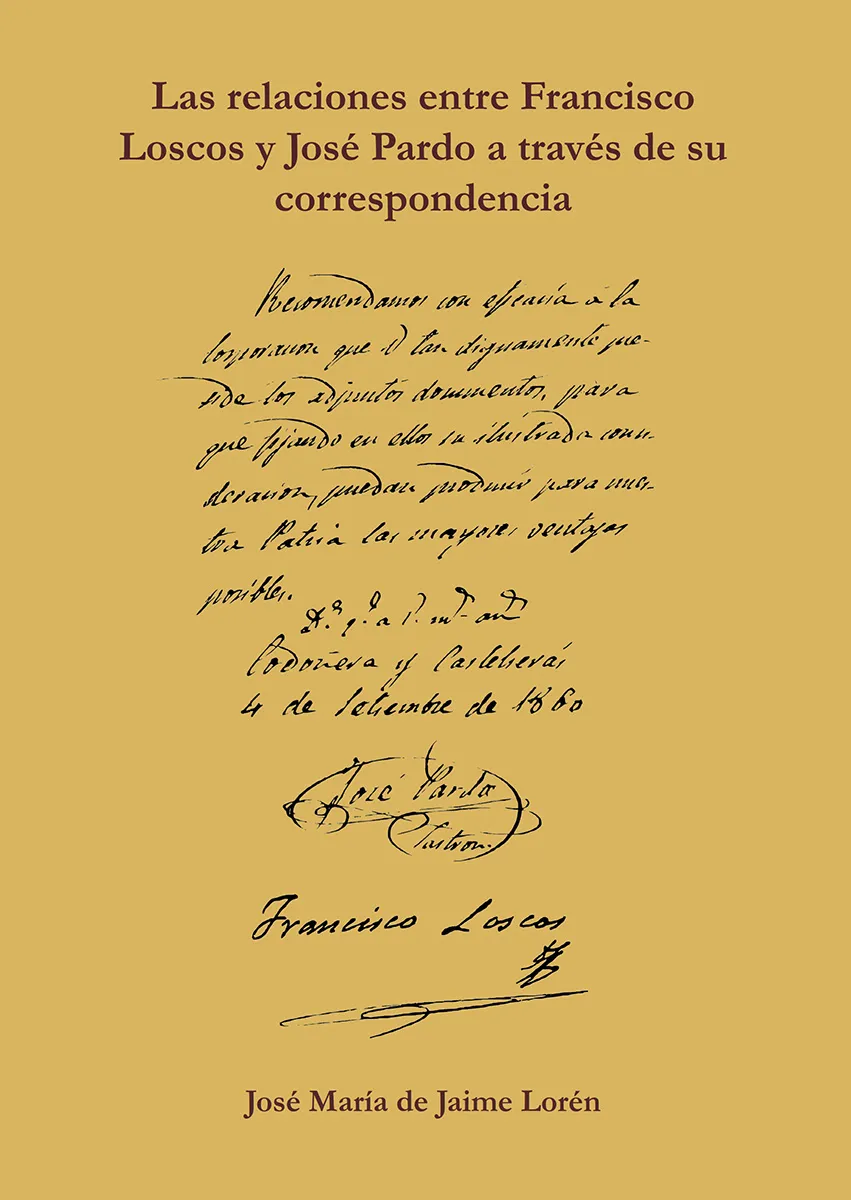 Las relaciones entre Francisco
Loscos y José Pardo a través de su
correspondencia
Recomendamos con eficacia á la
Corporacion que V tan dignamente pre-
side los adjuntos documentos, para
que fijando en ellos su ilustrada consi-
deracion, puedan producir para nues-
tra Patria las mayores ventajas
posibles.
D.s g.e a V. m.s an.s
Codoñera y Castelserás
4 de Setiembre de 1860
José Pardo
Sastron.
Francisco Loscos
José María de Jaime Lorén